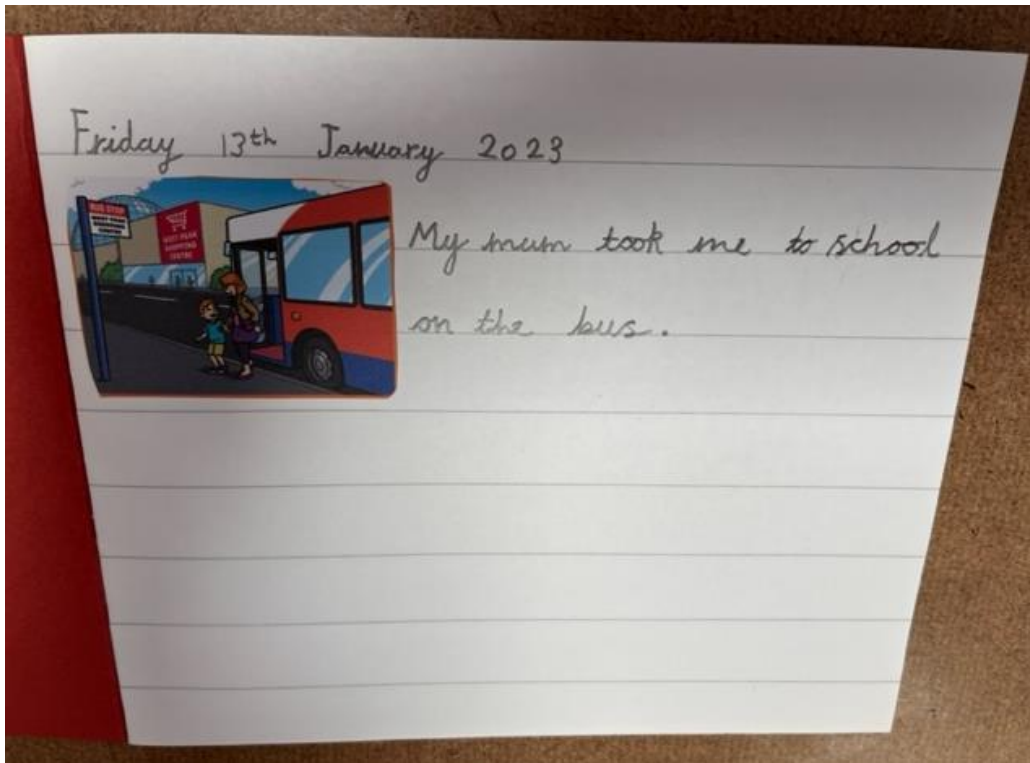 Friday 13th January 2023
BUS STOP
WEST PEAK
SHOPPING
CENTRE
My mum took me to school
on the bus.